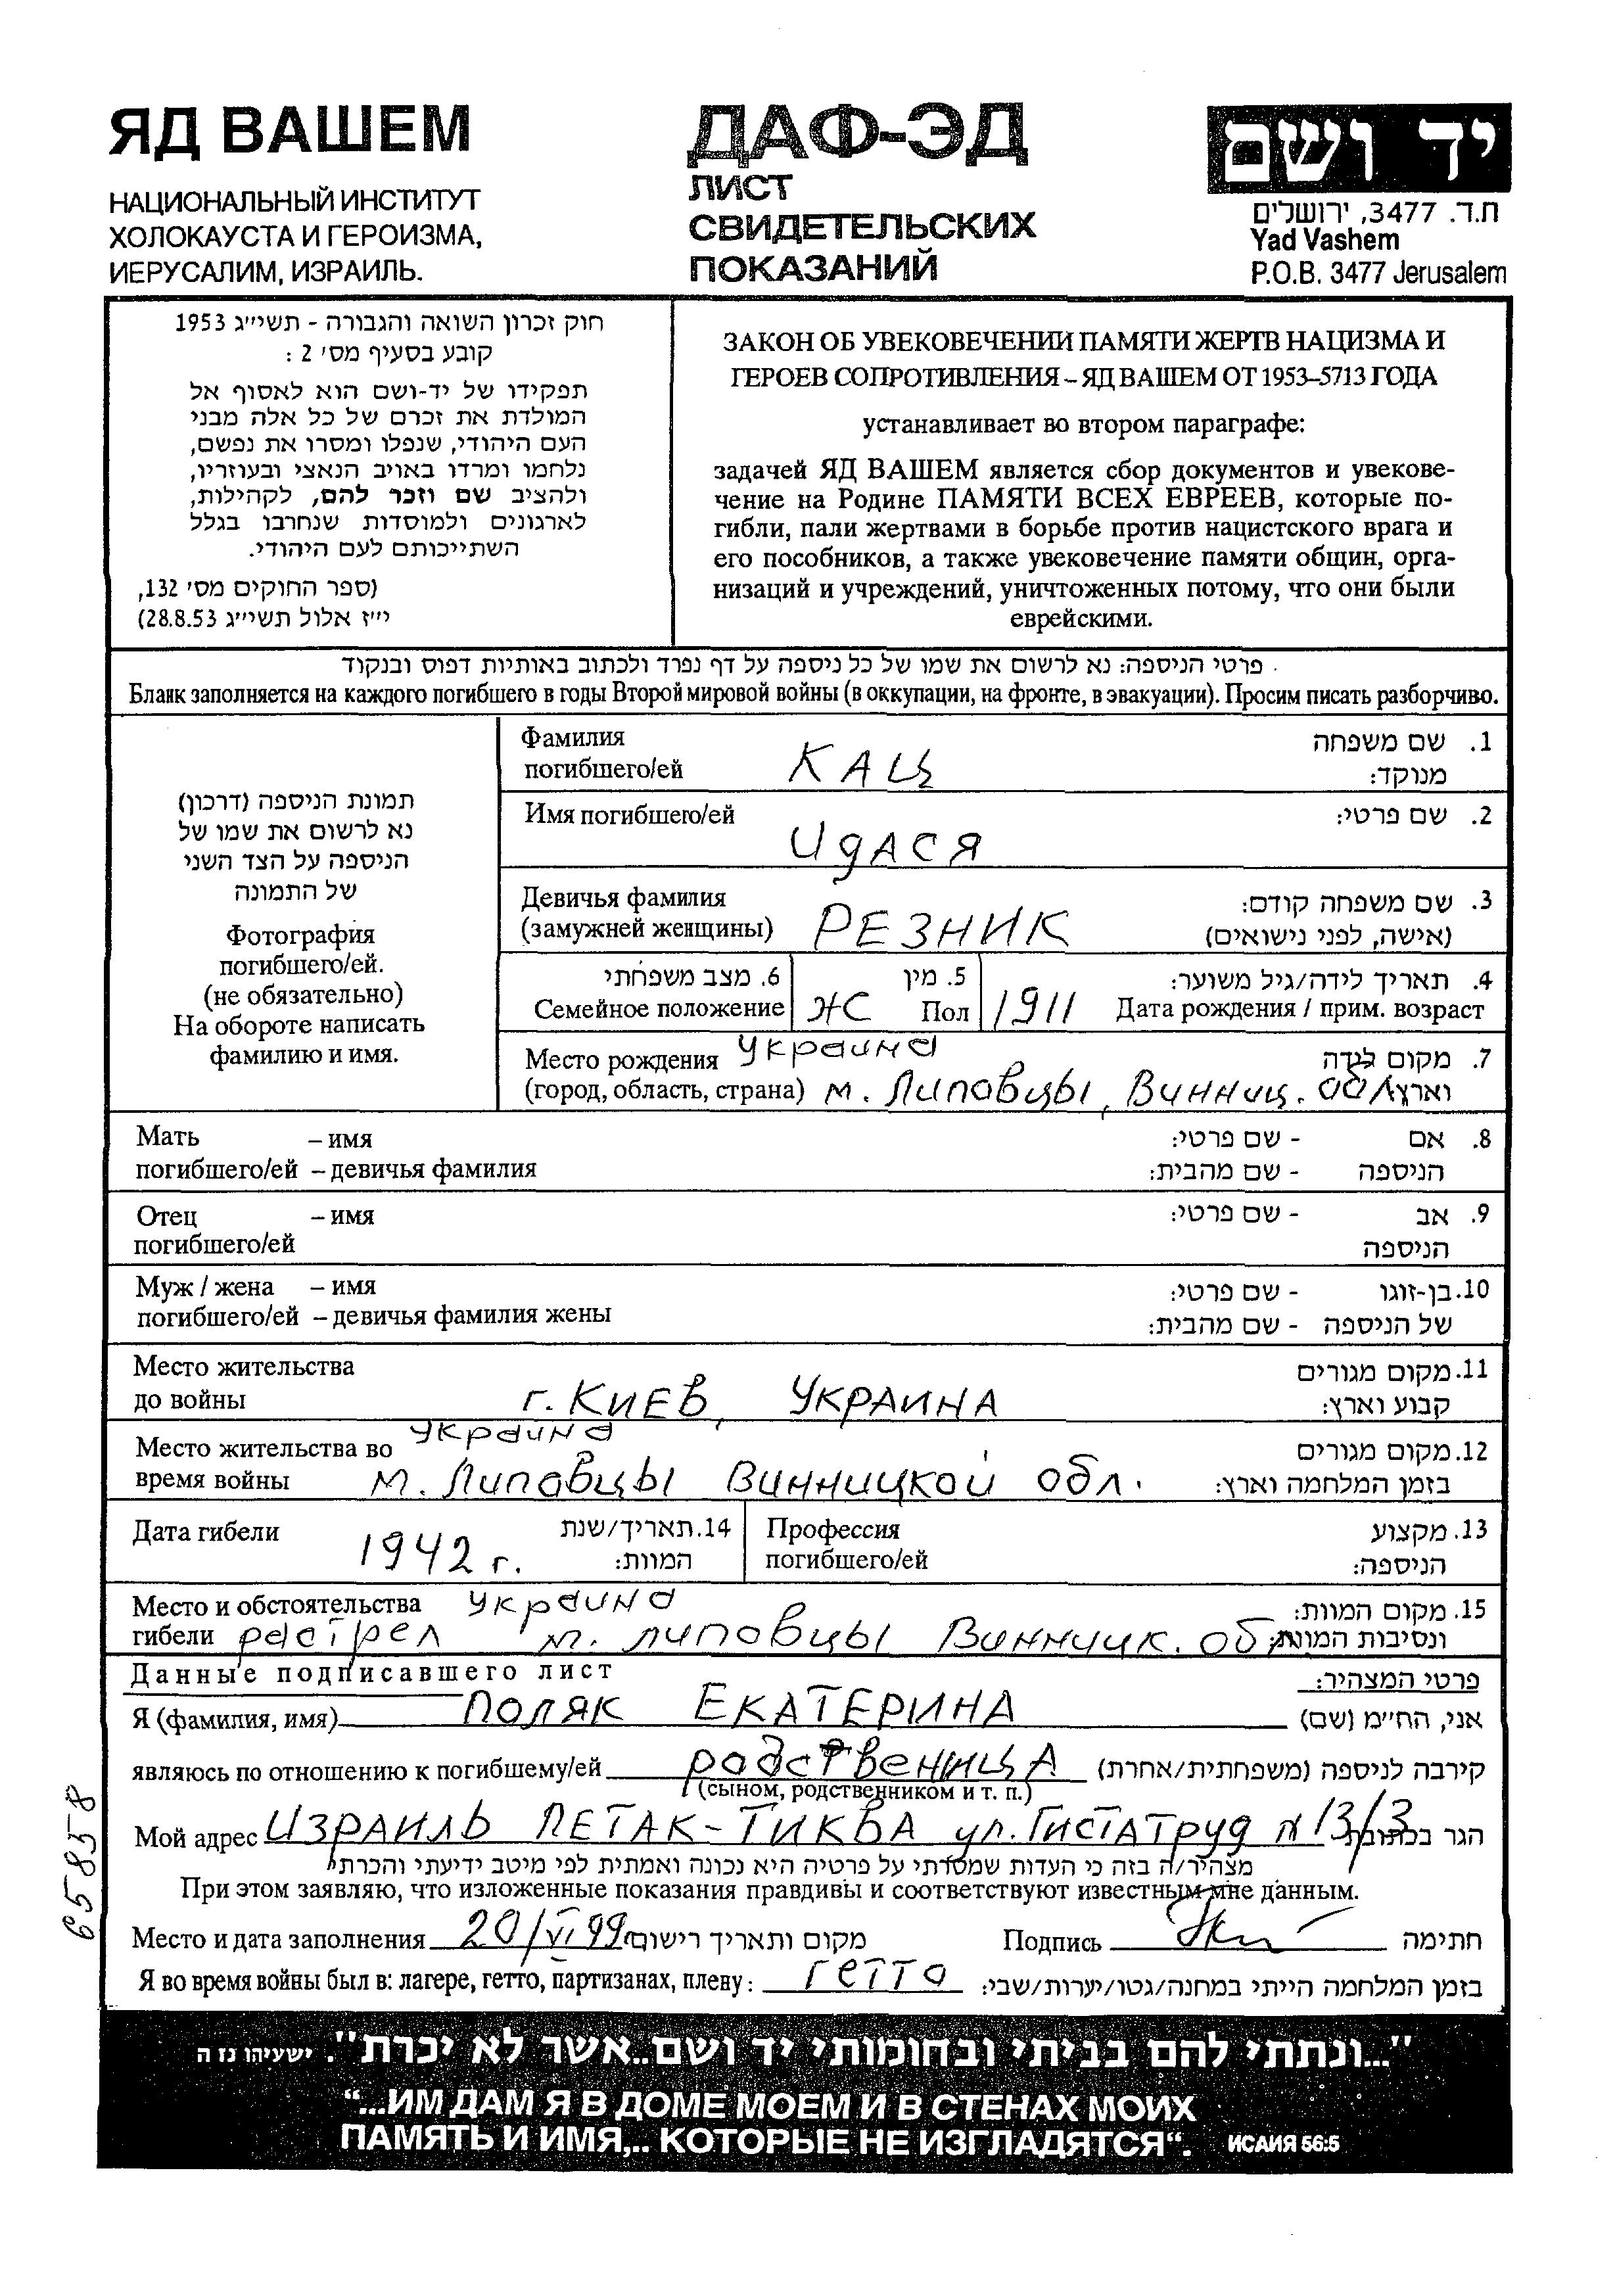 ЯД ВАШЕМ
НАЦИОНАЛЬНЫЙ ИНСТИТУТ
ХОЛОКАУСТА И ГЕРОИЗМА,
ИЕРУСАЛИМ, ИЗРАИЛЬ.
ДАФ-ЭД
ЛИСТ
СВИДЕТЕЛЬСКИХ
ПОКАЗАНИЙ
יד ושם
ת.ד. 3477, ירושלים
Yad Vashem
P.O.B. 3477 Jerusalem
חוק זכרון השואה והגבורה - תשי״ג 1953
קובע בסעיף מס׳ 2 :
תפקידו של יד-ושם הוא לאסוף אל
המולדת את זכרם של כל אלה מבני
העם היהודי, שנפלו ומסרו את נפשם,
נלחמו ומרדו באויב הנאצי ובעוזריו,
ולהציב שם וזכר להם, לקהילות,
לארגונים ולמוסדות שנחרבו בגלל
השתייכותם לעם היהודי.
(ספר החוקים מס׳ 132,
י״ז אלול תשי״ג 28.8.53)
ЗАКОН ОБ УВЕКОВЕЧЕНИИ ПАМЯТИ ЖЕРТВ НАЦИЗМА И
ГЕРОЕВ СОПРОТИВЛЕНИЯ – ЯД ВАШЕМ ОТ 1953–5713 ГОДА
устанавливает во втором параграфе:
задачей ЯД ВАШЕМ является сбор документов и увекове-
чение на Родине ПАМЯТИ ВСЕХ ЕВРЕЕВ, которые по-
гибли, пали жертвами в борьбе против нацистского врага и
его пособников, а также увековечение памяти общин, орга-
низаций и учреждений, уничтоженных потому, что они были
еврейскими.
פרטי הניספה: נא לרשום את שמו של כל ניספה על דף נפרד ולכתוב באותיות דפוס ובנקוד
Бланк заполняется на каждого погибшего в годы Второй мировой войны (в оккупации, на фронте, в эвакуации). Просим писать разборчиво.
תמונת הניספה (דרכון)
נא לרשום את שמו של
הניספה על הצד השני
של התמונה
Фотография
погибшего/ей.
(не обязательно)
На обороте написать
фамилию и имя.
Фамилия 1. שם משפחה
погибшего/ей КАЦ מנוקד:
Имя погибшего/ей 2. שם פרטי:
ИдАСЯ
Девичья фамилия 3. שם משפחה קודם:
(замужней женщины) РЕЗНИК (אישה, לפני נישואים)
6. מצב משפחתי 5. מין 4. תאריך לידה/גיל משוער:
Семейное положение ЖС Пол 1911 Дата рождения / прим. возраст
Место рождения Украина 7. מקום לידה
(город, область, страна) м. Липовцы, Винниц. обл. וארץ
Мать – имя 8. אם - שם פרטי:
погибшего/ей – девичья фамилия הניספה - שם מהבית:
Отец – имя 9. אב - שם פרטי:
погибшего/ей הניספה
Муж / жена – имя 10. בן-זוגו - שם פרטי:
погибшего/ей – девичья фамилия жены של הניספה - שם מהבית:
Место жительства 11. מקום מגורים
до войны г. КИЕВ, УКРАИНА קבוע וארץ:
Место жительства во Украина 12. מקום מגורים
время войны м. Липовцы Винницкой обл. בזמן המלחמה וארץ:
Дата гибели 1942 г. 14. תאריך/שנת
המוות:
Профессия 13. מקצוע
погибшего/ей הניספה:
Место и обстоятельства Украина 15. מקום המוות:
гибели растрел м. липовцы Винничк. обл. ונסיבות המוות:
Данные подписавшего лист פרטי המצהיר:
Я (фамилия, имя) ПОЛЯК ЕКАТЕРИНА אני, הח״מ (שם)
являюсь по отношению к погибшему/ей родственницА קירבה לניספה (משפחתית/אחרת)
(сыном, родственником и т. п.)
Мой адрес ИЗРАИЛЬ ПЕТАК-ТИКВА ул. Гистатруд N 13/3 הגר בכתובת
מצהיר/ה בזה כי העדות שמסרתי על פרטיה היא נכונה ואמתית לפי מיטב ידיעתי והכרתי
При этом заявляю, что изложенные показания правдивы и соответствуют известным мне данным.
Место и дата заполнения 20/VI 99 מקום ותאריך רישום Подпись חתימה
Я во время войны был в: лагере, гетто, партизанах, плену: гетто בזמן המלחמה הייתי במחנה/גטו/יערות/שבי:
65835 8
"...ונתתי להם בביתי ובחומותי יד ושם..אשר לא יכרת". ישעיהו נז ה
“...ИМ ДАМ Я В ДОМЕ МОЕМ И В СТЕНАХ МОИХ
ПАМЯТЬ И ИМЯ,.. КОТОРЫЕ НЕ ИЗГЛАДЯТСЯ“. ИСАИЯ 56:5